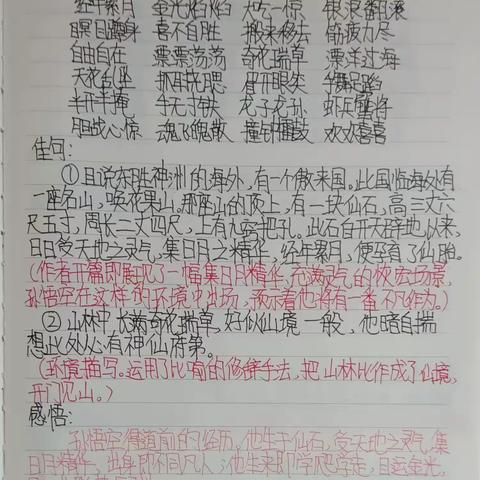 经年累月 金光焰焰 大吃一惊 银浪翻滚
瞑目蹲身 喜不自胜 搬来移去 筋疲力尽
自由自在 飘飘荡荡 奇花瑞草 漂洋过海
天花乱坠 抓耳挠腮 眉开眼笑 手舞足蹈
半开半掩 手无寸铁 龙子龙孙 虾兵蟹将
胆战心惊 魂飞魄散 撞钟擂鼓 欢欢喜喜
佳句:
①且说东胜神洲的海外,有一个傲来国。此国临海处有
一座名山,唤花果山。那座山的顶上,有一块仙石,高三丈六
尺五寸,周长二丈四尺,上有九窍把孔。此石自开天辟地以来,
日日受天地之灵气,集日月之精华,经年累月,便孕育了仙胎。
(作者开篇即展现了一幅集日月精华,充满灵气的恢宏场景,
孙悟空在这样的环境中出场,预示着他将有一番不凡作为。)
②山林中,长满奇花瑞草,好似仙境一般,他暗自揣
想此处必有神仙府第。
(环境描写。运用了比喻的修辞手法,把山林比作成了仙境,
开门见山。)
感悟:
孙悟空得道前的经历,他生于仙石,受天地之灵气,集
日月精华,出身即不同凡人;他生来即学爬学走,目运金光,